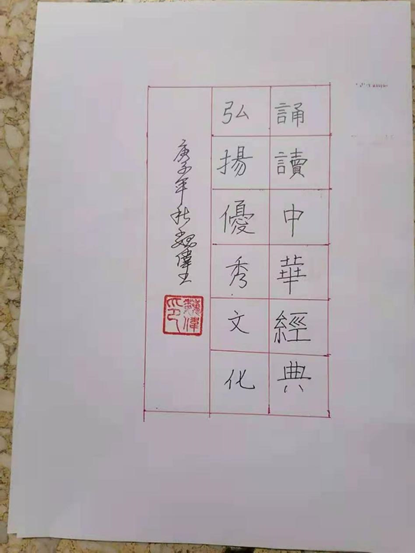 誦讀中華經典
弘揚優秀文化
庚子年秋魏偉